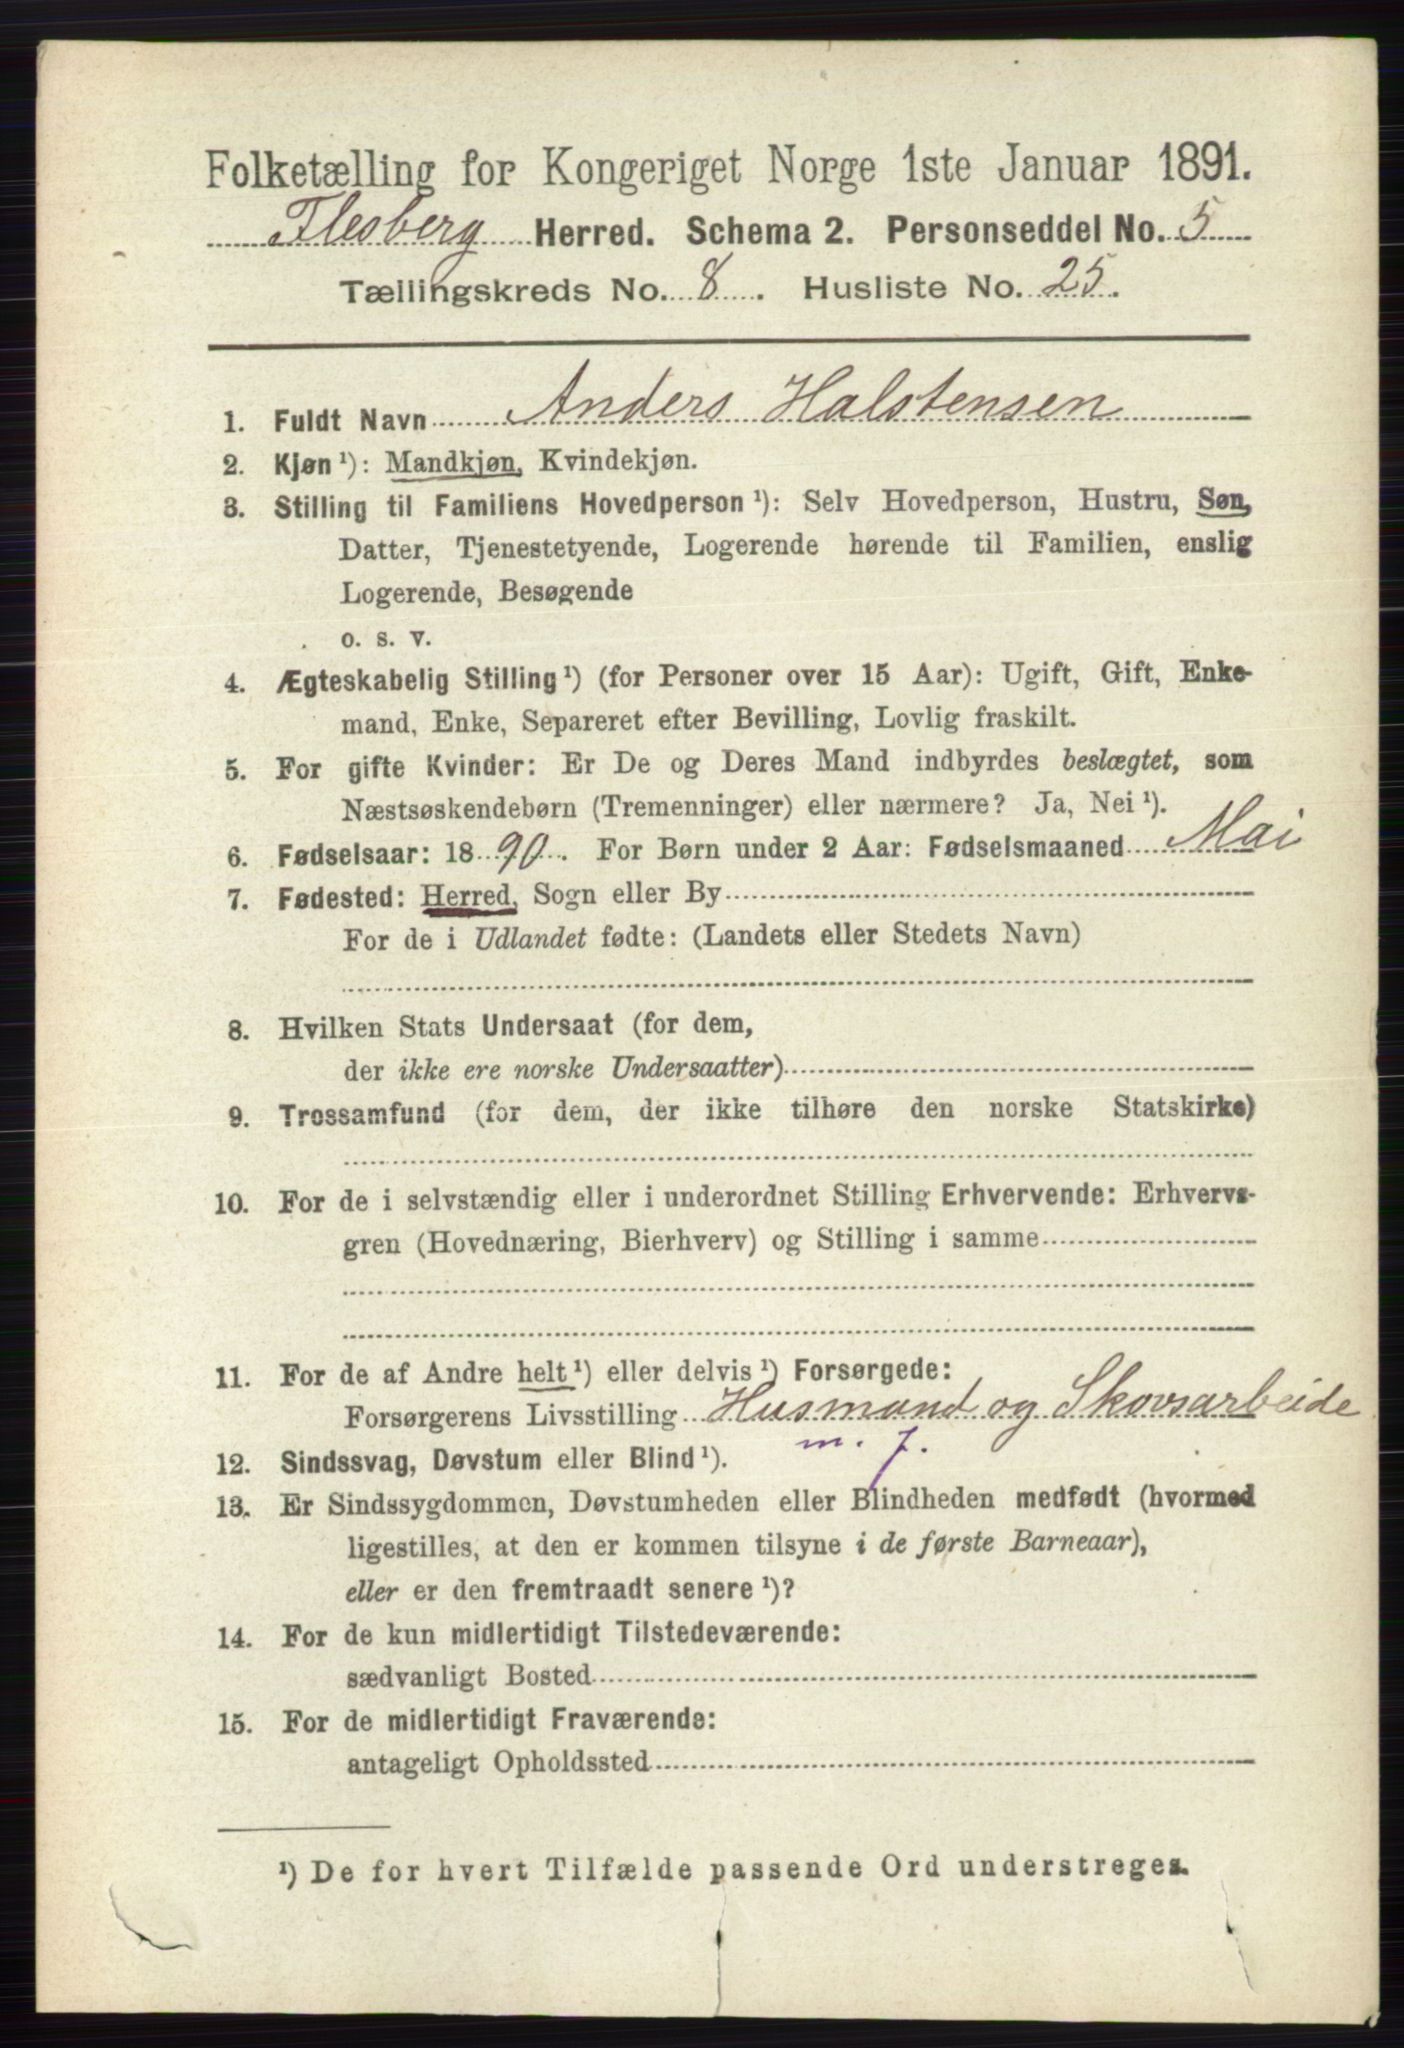 Folketælling for Kongeriget Norge 1ste Januar 1891.
Flesberg Herred. Schema 2. Personseddel No. 5
Tællingskreds No. 8. Husliste No. 25.
1. Fuldt Navn Anders Halstensen
2. Kjøn ¹): Mandkjøn, Kvindekjøn.
3. Stilling til Familiens Hovedperson ¹): Selv Hovedperson, Hustru, Søn,
Datter, Tjenestetyende, Logerende hørende til Familien, enslig
Logerende, Besøgende
o. s. v.
4. Ægteskabelig Stilling ¹) (for Personer over 15 Aar): Ugift, Gift, Enke-
mand, Enke, Separeret efter Bevilling, Lovlig fraskilt.
5. For gifte Kvinder: Er De og Deres Mand indbyrdes beslægtet, som
Næstsøskendebørn (Tremenninger) eller nærmere? Ja, Nei ¹).
6. Fødselsaar: 1890. For Børn under 2 Aar: Fødselsmaaned Mai
7. Fødested: Herred, Sogn eller By
For de i Udlandet fødte: (Landets eller Stedets Navn)
8. Hvilken Stats Undersaat (for dem,
der ikke ere norske Undersaatter)
9. Trossamfund (for dem, der ikke tilhøre den norske Statskirke)
10. For de i selvstændig eller i underordnet Stilling Erhvervende: Erhvervs-
gren (Hovednæring, Bierhverv) og Stilling i samme
11. For de af Andre helt ¹) eller delvis ¹) Forsørgede:
Forsørgerens Livsstilling Husmand og Skovsarbeide
m. j.
12. Sindssvag, Døvstum eller Blind ¹).
13. Er Sindssygdommen, Døvstumheden eller Blindheden medfødt (hvormed
ligestilles, at den er kommen tilsyne i de første Barneaar),
eller er den fremtraadt senere ¹)?
14. For de kun midlertidigt Tilstedeværende:
sædvanligt Bosted
15. For de midlertidigt Fraværende:
antageligt Opholdssted
¹) De for hvert Tilfælde passende Ord understreges.